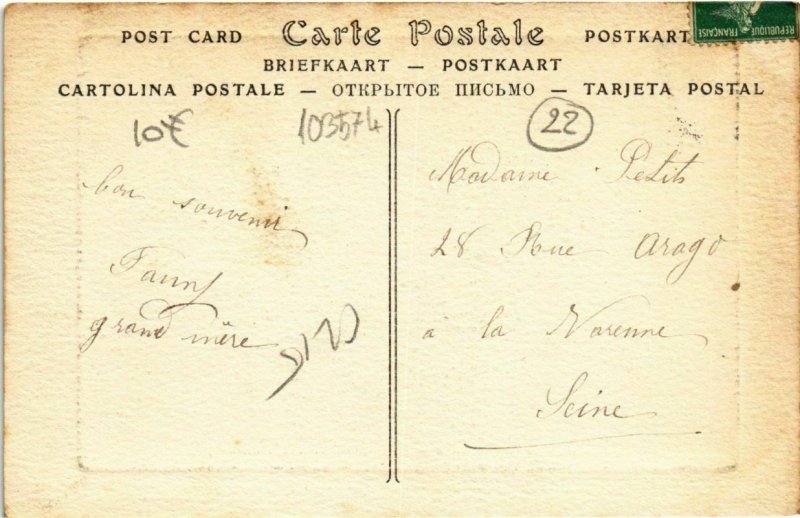 POST CARD Carte Postale POSTKART
BRIEFKAART — POSTKAART
CARTOLINA POSTALE — ОТКРЫТОЕ ПИСЬМО — TARJETA POSTAL
REPUBLIQUE FRANÇAISE
10€
103574
22
bon souvenir
Fanny
grand mère
Madame Petit
28 Rue Arago
à la Varenne
Seine